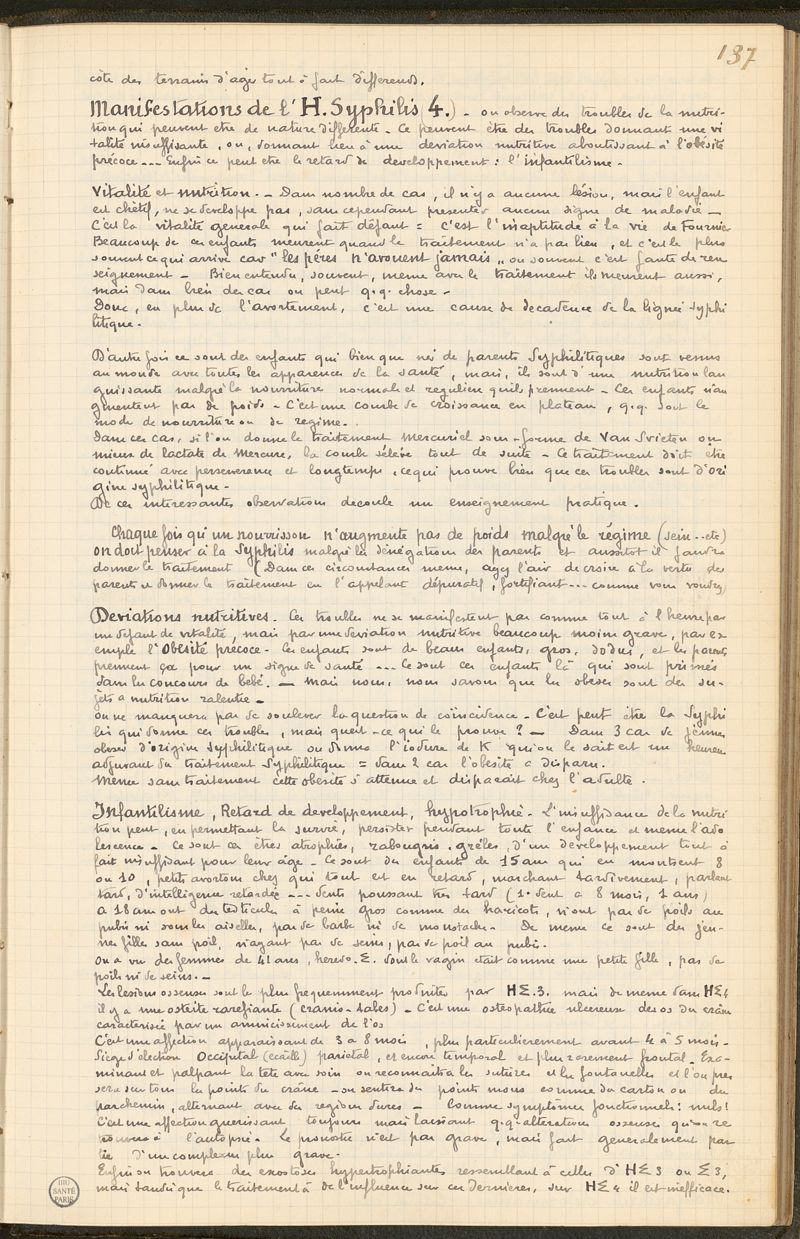 137
côté des terrains d'agir tout à fait differends.
Manifestations de l'H. Syphilis (4.) - on observe des troubles de la nutri-
tion qui peuvent etre de nature differente. Ce peuvent être des troubles donnant une vi
talité insuffisante, ou, donnant lieu à une deviation nutritive aboutissant à l'obésité
précoce --- Enfin ce peut etre le retard de developpement : l'infantilisme -
Vitalité et nutrition. - Dans nombre de cas, il n'y a aucune lésion, mais l'enfant
est chétif, ne se developpe pas, sans cependant presenter aucun signe de maladie -
C'est la vitalité generale qui fait défaut = c'est l'inaptitude à la vie de Fournier
Beaucoup de ces enfants meurent quand le traitement n'a pas lieu, et c'est le plus
souvent ce qui arrive car "les pères n'avouent jamais" ou souvent c'est faute de ren
seignement - Bien entendu, souvent, meme avec le traitement ils meurent aussi,
mais dans bien des cas on peut q.q. chose -
Donc, en plus de l'avortement, c'est une cause de decadence de la lignée syphi
litique -
D'autre fois ce sont des enfants qui bien que nés de parents Syphilitiques sont venus
au monde avec toutes les apparences de la santé, mais, ils sont d'une nutrition lan
guissante malgré la nourriture normale et reguliere qu'ils prennent - Ces enfants n'au
gmentent pas de poids - C'est une courbe de croissance en plateau, q.q. soit le
mode de nourriture ou de regime -
Dans ces cas, si l'on donne le traitement mercuriel sous forme de Van Svieten ou
mieux de lactate de mercure, la courbe s'élève tout de suite - Ce traitement doit etre
continué avec perseverence et longtemps, ce qui prouve bien que ces troubles sont d'ori
gine syphilitique -
De ces interessantes observations decoule un enseignement pratique.
Chaque fois qu'un nourrisson n'augmente pas de poids malgré le régime (sein -- etc)
on doit penser à la Syphilis malgré la dénégation des parents et aussitot il faudra
donner le traitement (Dans ces circonstances meme, ayez l'air de croire à la vertu des
parents et donner le traitement en l'appelant dépuratif, fortifiant --- comme vous voudrez)
Deviations nutritives. Ces troubles ne se manifestent pas comme tout à l'heure par
un defaut de vitalité, mais par une deviation nutritive beaucoup moins grave, par ex
emple l'obésité précoce - Ces enfants sont de beaux enfants, gros, dodus, et les parents
prennent ça pour un signe de santé --- Ce sont ces enfants là qui sont primés
dans les concours de bébé. - Mais nous, nous savons que les obeses sont des su-
jets a nutrition ralentie -
On ne manquera pas de soulever la question de coïncidence - C'est peut etre la Syphi
lis qui donne ces troubles, mais qu'est-ce qui le prouve ? - Dans 3 cas de jeunes
obeses d'origine syphilitique on donna l'iodure de K qu'on le sait est un heureux
adjuvant du traitement Syphilitique = dans 2 cas l'obésité a disparu.
Meme sans traitement cette obésité s'attenue et disparait chez l'adulte.
Infantilisme, Retard de developpement, hypotrophie - L'insuffisance de la nutri
tion peut, en permettant la survie, persister pendant toute l'enfance et meme l'ado
lescence - Ce sont ces êtres atrophiés, rabougris, grêles, d'un développement tout à
fait insuffisant pour leur âge - Ce sont des enfants de 15 ans qui en montrent 8
ou 10, petits avortons chez qui tout est en retard, marchant tardivement, parlant
tard, d'intelligence retardée --- dents poussant très tard (1e dent a 8 mois, 1 ans)
a 18 ans ont des testicules à peine gros comme des haricots, n'ont pas de poils au
pubis ni sous les aiselles, pas de barbe ni de moustache - De meme ce sont des jeu-
nes filles sans poil, n'ayant pas de seins, pas de poil au pubis.
On a vu des femmes de 41 ans, heredo.Σ. dont le vagin etait comme une petite fille, pas de
poils ni de seins. -
Les lesions osseuses sont le plus frequemment produites par HΣ.3. mais de meme dans HΣ4
il y a une osteite rarefiante (cranio-tabes) - C'est une osteopathie ulcereuse des os du crâne
caracterisée par un amincissement de l'os
C'est une affection apparaissant de 3 a 8 mois, plus particulierement avant 4 à 5 mois -
Siège d'élection occipital (écaille) pariétal, et encore temporal et plus rarement frontal - Exa-
minant et palpant la tete avec soin on reconnaitra les sutures et les fontanelles et l'on pres
sera sur tous les points du crâne - on sentira des points mous comme du carton ou du
parchemin, alternant avec des regions dures - Comme symptômes fonctionnels : nuls !
C'est une affection guerissant toujours mais laissant q.q. alterations osseuses qu'on re
trouvera à l'autopsie - Le pronostic n'est pas grave, mais fait generalement par
tie d'un complexus plus grave -
Enfin on trouvera des exostoses hypertrophiantes ressemblant à celles d'HΣ3 ou Σ3,
mais tandis que le traitement à de l'influence sur ces dernieres, sur HΣ4 il est inefficace.
BIU
SANTÉ
PARIS